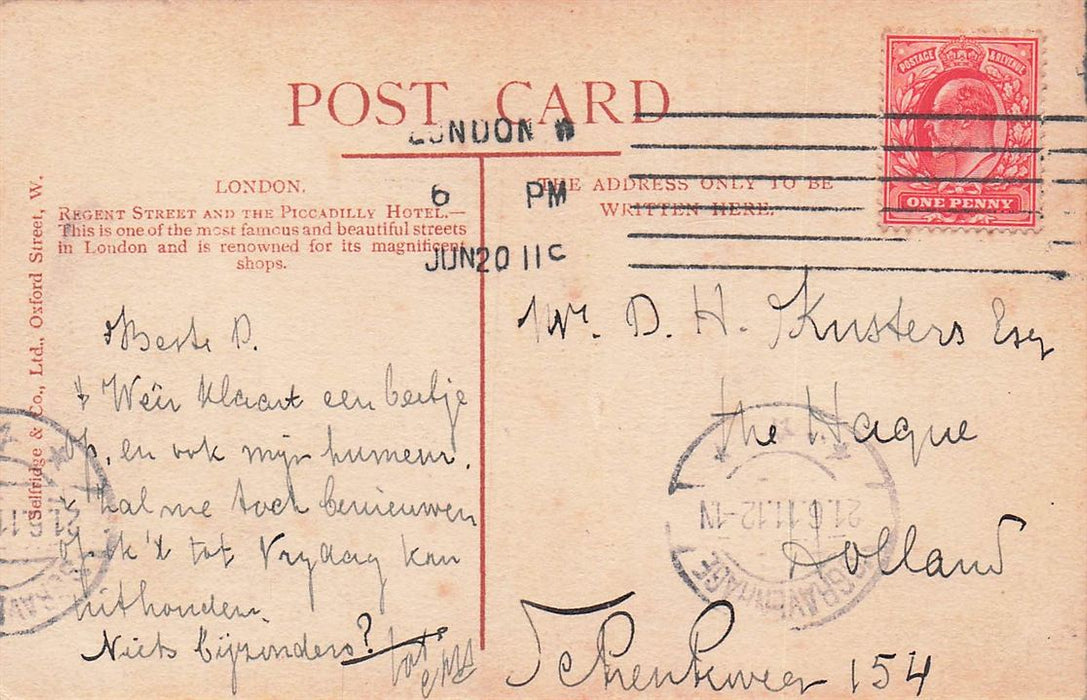 POST CARD
LONDON W
6 PM
JUN 20 11
POSTAGE & REVENUE
ONE PENNY
LONDON.
REGENT STREET AND THE PICCADILLY HOTEL.—
This is one of the most famous and beautiful streets
in London and is renowned for its magnificent
shops.
THE ADDRESS ONLY TO BE
WRITTEN HERE.
Selfridge & Co., Ltd., Oxford Street, W.
Beste D.
't Weer klaart een beetje
op, en ook mijn humeur.
't Zal me toch benieuwen
of ik 't tot Vrydag kan
uithouden.
Niets bijzonders?
Mr. D. H. Kusters Esq
the Hague
Holland
Schenkweg 154
21.6.11.12-1N
'S GRAVENHAGE
21.6.11
GRAV